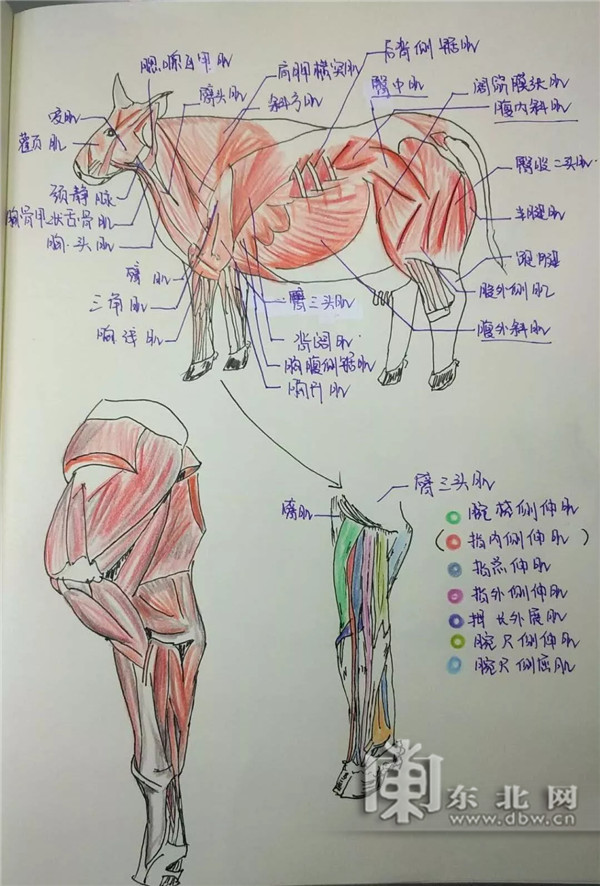 臂头肌
斜方肌
肩胛横突肌
后背侧锯肌
臀中肌
阔筋膜张肌
腹内斜肌
咬肌
颧页肌
颈静脉
胸骨甲状舌骨肌
胸头肌
臂肌
三角肌
胸浅肌
臂三头肌
背阔肌
胸腹侧锯肌
胸升肌
臀股二头肌
半腱肌
跟腱
股外侧肌
腹外斜肌
臂肌
臂三头肌
腕桡侧伸肌
(指内侧伸肌)
指总伸肌
指外侧伸肌
拇长外展肌
腕尺侧伸肌
腕尺侧屈肌
东北网
www.dbw.cn